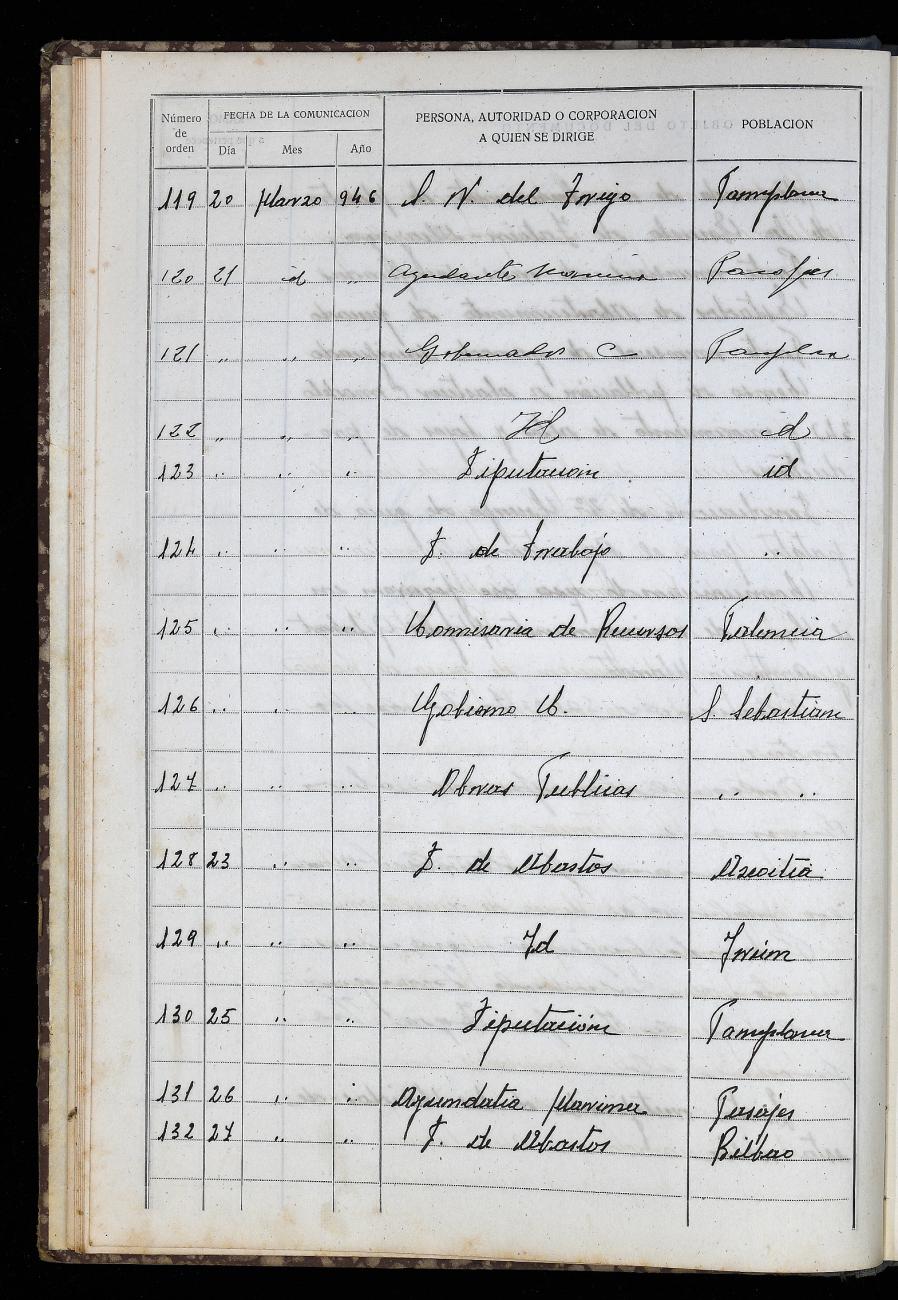 Número de orden FECHA DE LA COMUNICACION Día Mes Año PERSONA, AUTORIDAD O CORPORACION A QUIEN SE DIRIGE POBLACION
119 20 Marzo 946 S. N. del Trigo Pamplona
120 21 id " Ayudante Marina Pasajes
121 " " " Gobernador C Pamplona
122 " " " Id id
123 " " " Diputacion id
124 " " " D. de trabajo "
125 " " " Comisaria de Recursos Palencia
126 " " " Gobierno C. S. Sebastian
127 " " " Obras Publicas " "
128 23 " " D. de Abastos Azcoitia
129 " " " Id Irún
130 25 " " Diputación Pamplona
131 26 " " Ayundatia Marina Pasajes
132 27 " " D. de Abastos Bilbao